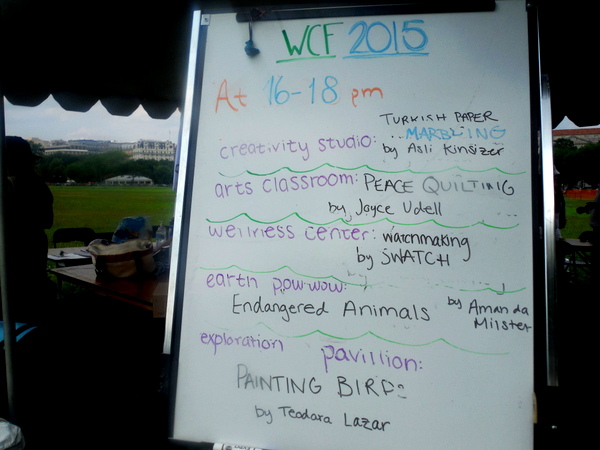 WCF 2015
At 16-18 pm
TURKISH PAPER
creativity studio: MARBLING
by Asli Kinsizer
arts classroom: PEACE QUILTING
by Joyce Udell
wellness center: watchmaking
by SWATCH
earth pow-wow:
Endangered Animals by Amanda
Milster
exploration pavillion:
PAINTING BIRDS
by Teodara Lazar